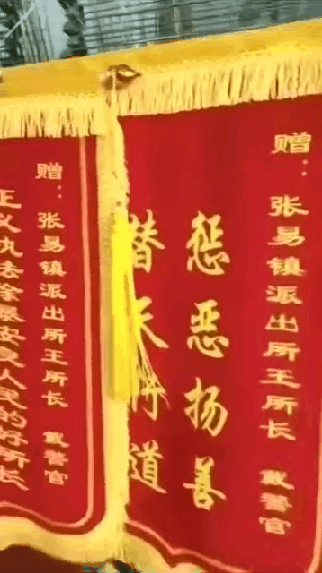 赠：张易镇派出所王所长 戴警官
惩恶扬善
替天行道
赠：张易镇派出所王所长 戴警官
正义执法除暴安良人民的好所长